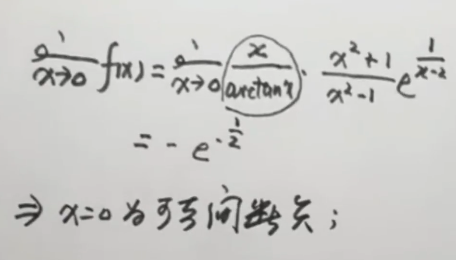 lim x→0 f(x) = lim x→0 x/arctan x · (x²+1)/(x²-1) e^(1/(x-2))
= - e^(-1/2)
⇒ x=0 为可去间断点;